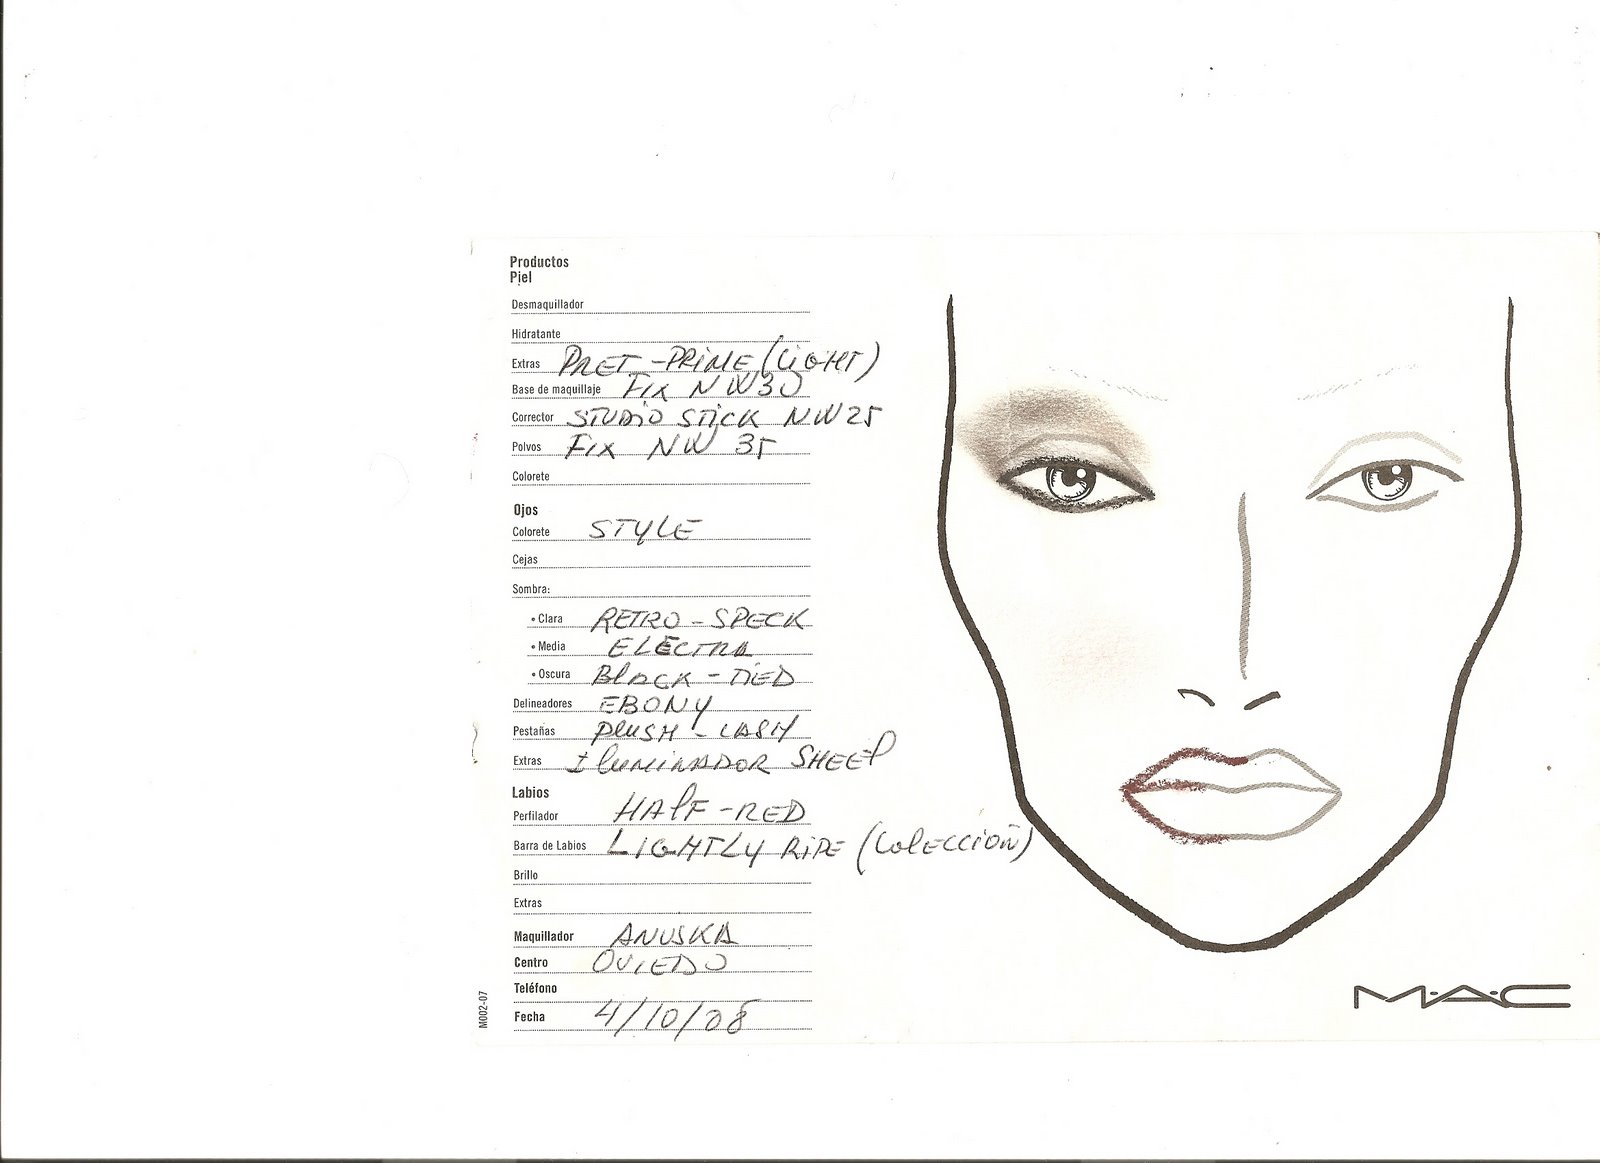 Productos
Piel
Desmaquillador
Hidratante
Extras PRET-PRIME (LiGHT)
Base de maquillaje Fix NW30
Corrector STUDiO STiCK NW25
Polvos Fix NW 35
Colorete
Ojos
Colorete STYLE
Cejas
Sombra:
• Clara RETRO-SPECK
• Media ELECTRA
• Oscura BlACK-TiED
Delineadores EBONY
Pestañas PlUSH-LASH
Extras IluMiNADOR SHEEP
Labios
Perfilador HAlF-RED
Barra de Labios LIGHTLY RiPE (ColECCiOÑ)
Brillo
Extras
Maquillador ANUSKA
Centro OViEDO
Teléfono
Fecha 4/10/08
M002-07
M·A·C